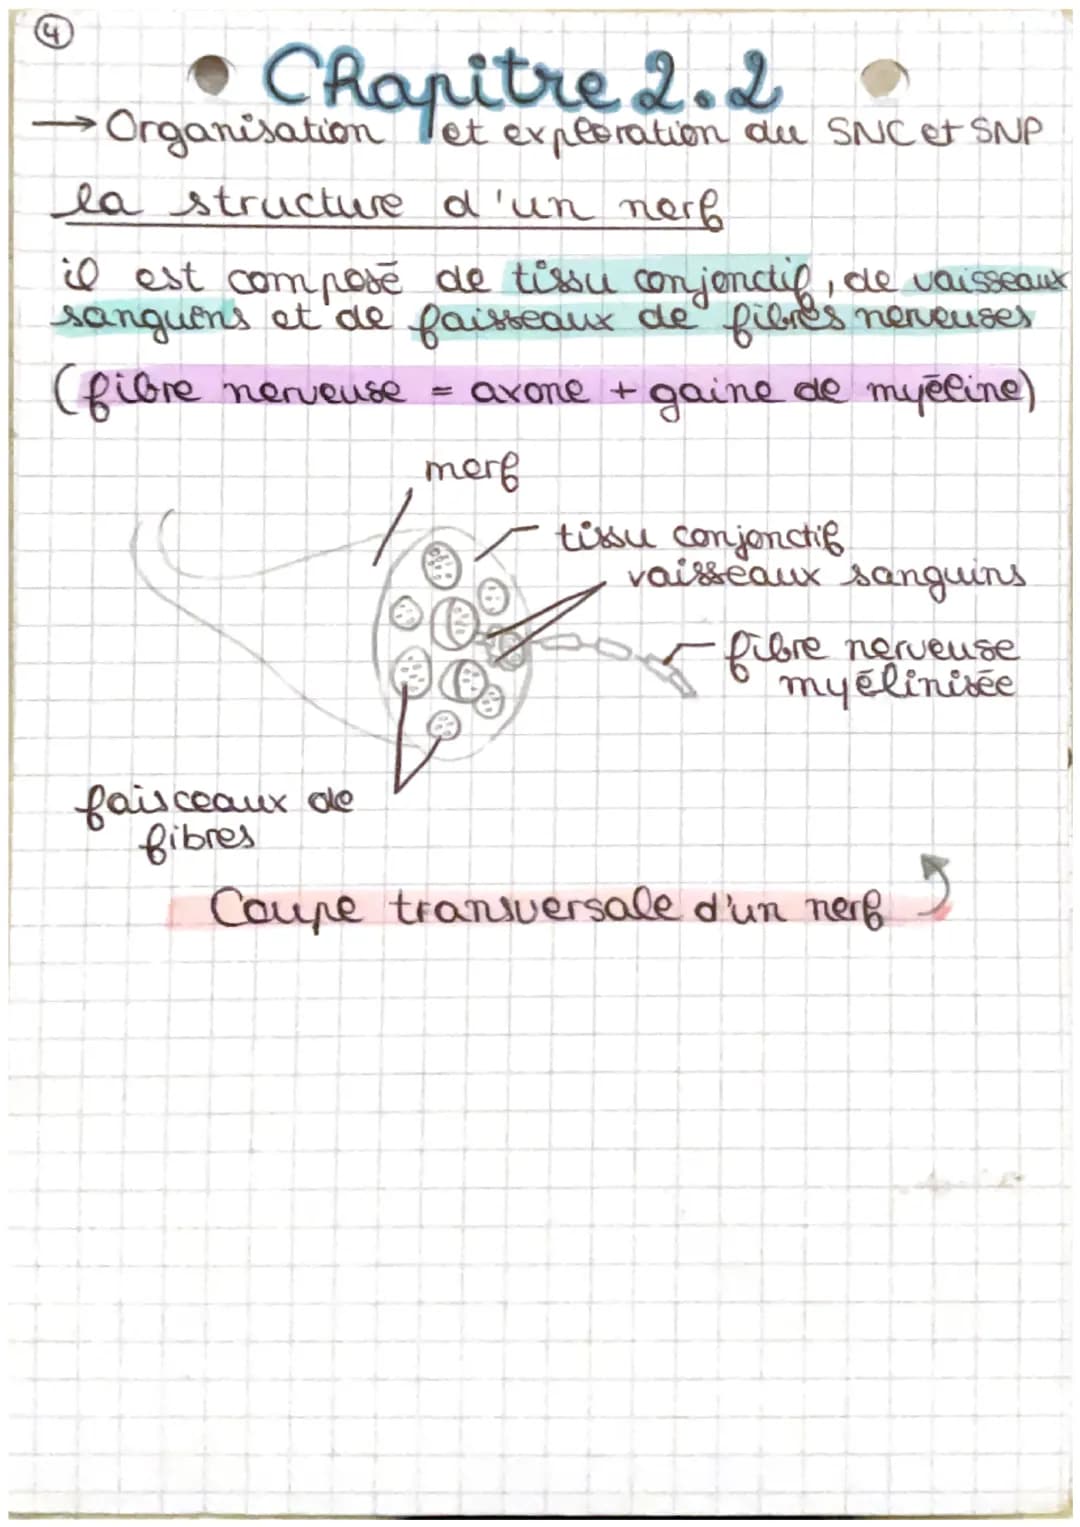 4
Chapitre 2.2
→ Organisation et exploration du SNC et SNP
la structure d'un nerf
il est composé de tissu conjonctif, de vaisseaux
sanguins et de faisseaux de fibres nerveuses
(fibre nerveuse = axone + gaine de myéline)
nerf
tissu conjonctif
vaisseaux sanguins
fibre nerveuse
myélinisée
faisceaux de
fibres
Coupe transversale d'un nerf